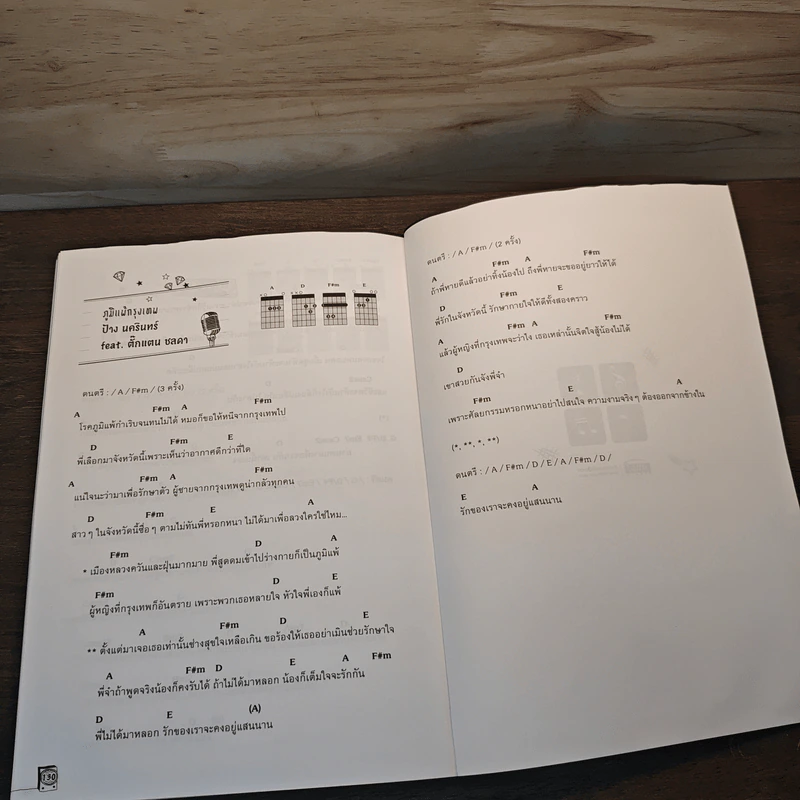 ภูมิแพ้กรุงเทพ
ป้าง นครินทร์
feat. ตั๊กแตน ชลดา
A D F#m E
ดนตรี : / A / F#m / (3 ครั้ง)
A F#m A F#m
โรคภูมิแพ้กำเริบจนทนไม่ได้ หมอก็ขอให้หนีจากกรุงเทพไป
D F#m E
พี่เลือกมาจังหวัดนี้เพราะเห็นว่าอากาศดีกว่าที่ใด
A F#m A F#m
แน่ใจนะว่ามาเพื่อรักษาตัว ผู้ชายจากกรุงเทพดูน่ากลัวทุกคน
D F#m E A
สาว ๆ ในจังหวัดนี้ซื่อ ๆ ตามไม่ทันพี่หรอกหนา ไม่ได้มาเพื่อลวงใครใช่ไหม...
F#m D A
* เมืองหลวงควันและฝุ่นมากมาย พี่สูดดมเข้าไปร่างกายก็เป็นภูมิแพ้
F#m D E
ผู้หญิงที่กรุงเทพก็อันตราย เพราะพวกเธอหลายใจ หัวใจพี่เองก็แพ้
A F#m D E
** ตั้งแต่มาเจอเธอเท่านั้นช่างสุขใจเหลือเกิน ขอร้องให้เธออย่าเมินช่วยรักษาใจ
A F#m D E A F#m
พี่จ๋าถ้าพูดจริงน้องก็คงรับได้ ถ้าไม่ได้มาหลอก น้องก็เต็มใจจะรักกัน
D E (A)
พี่ไม่ได้มาหลอก รักของเราจะคงอยู่แสนนาน
130
ดนตรี : / A / F#m / (2 ครั้ง)
A F#m A F#m
ถ้าพี่หายดีแล้วอย่าทิ้งน้องไป ถึงพี่หายจะขออยู่ยาวให้ได้
D F#m E
พี่รักในจังหวัดนี้ รักษากายใจให้ดีทั้งสองคราว
A F#m A F#m
แล้วผู้หญิงที่กรุงเทพจะว่าไง เธอเหล่านั้นจิตใจสู้น้องไม่ได้
D
เขาสวยกันจังพี่จ๋า
F#m E A
เพราะศัลยกรรมหรอกหนาอย่าไปสนใจ ความงามจริงๆ ต้องออกจากข้างใน
(*, **, *, **)
ดนตรี : / A / F#m / D / E / A / F#m / D /
E A
รักของเราจะคงอยู่แสนนาน